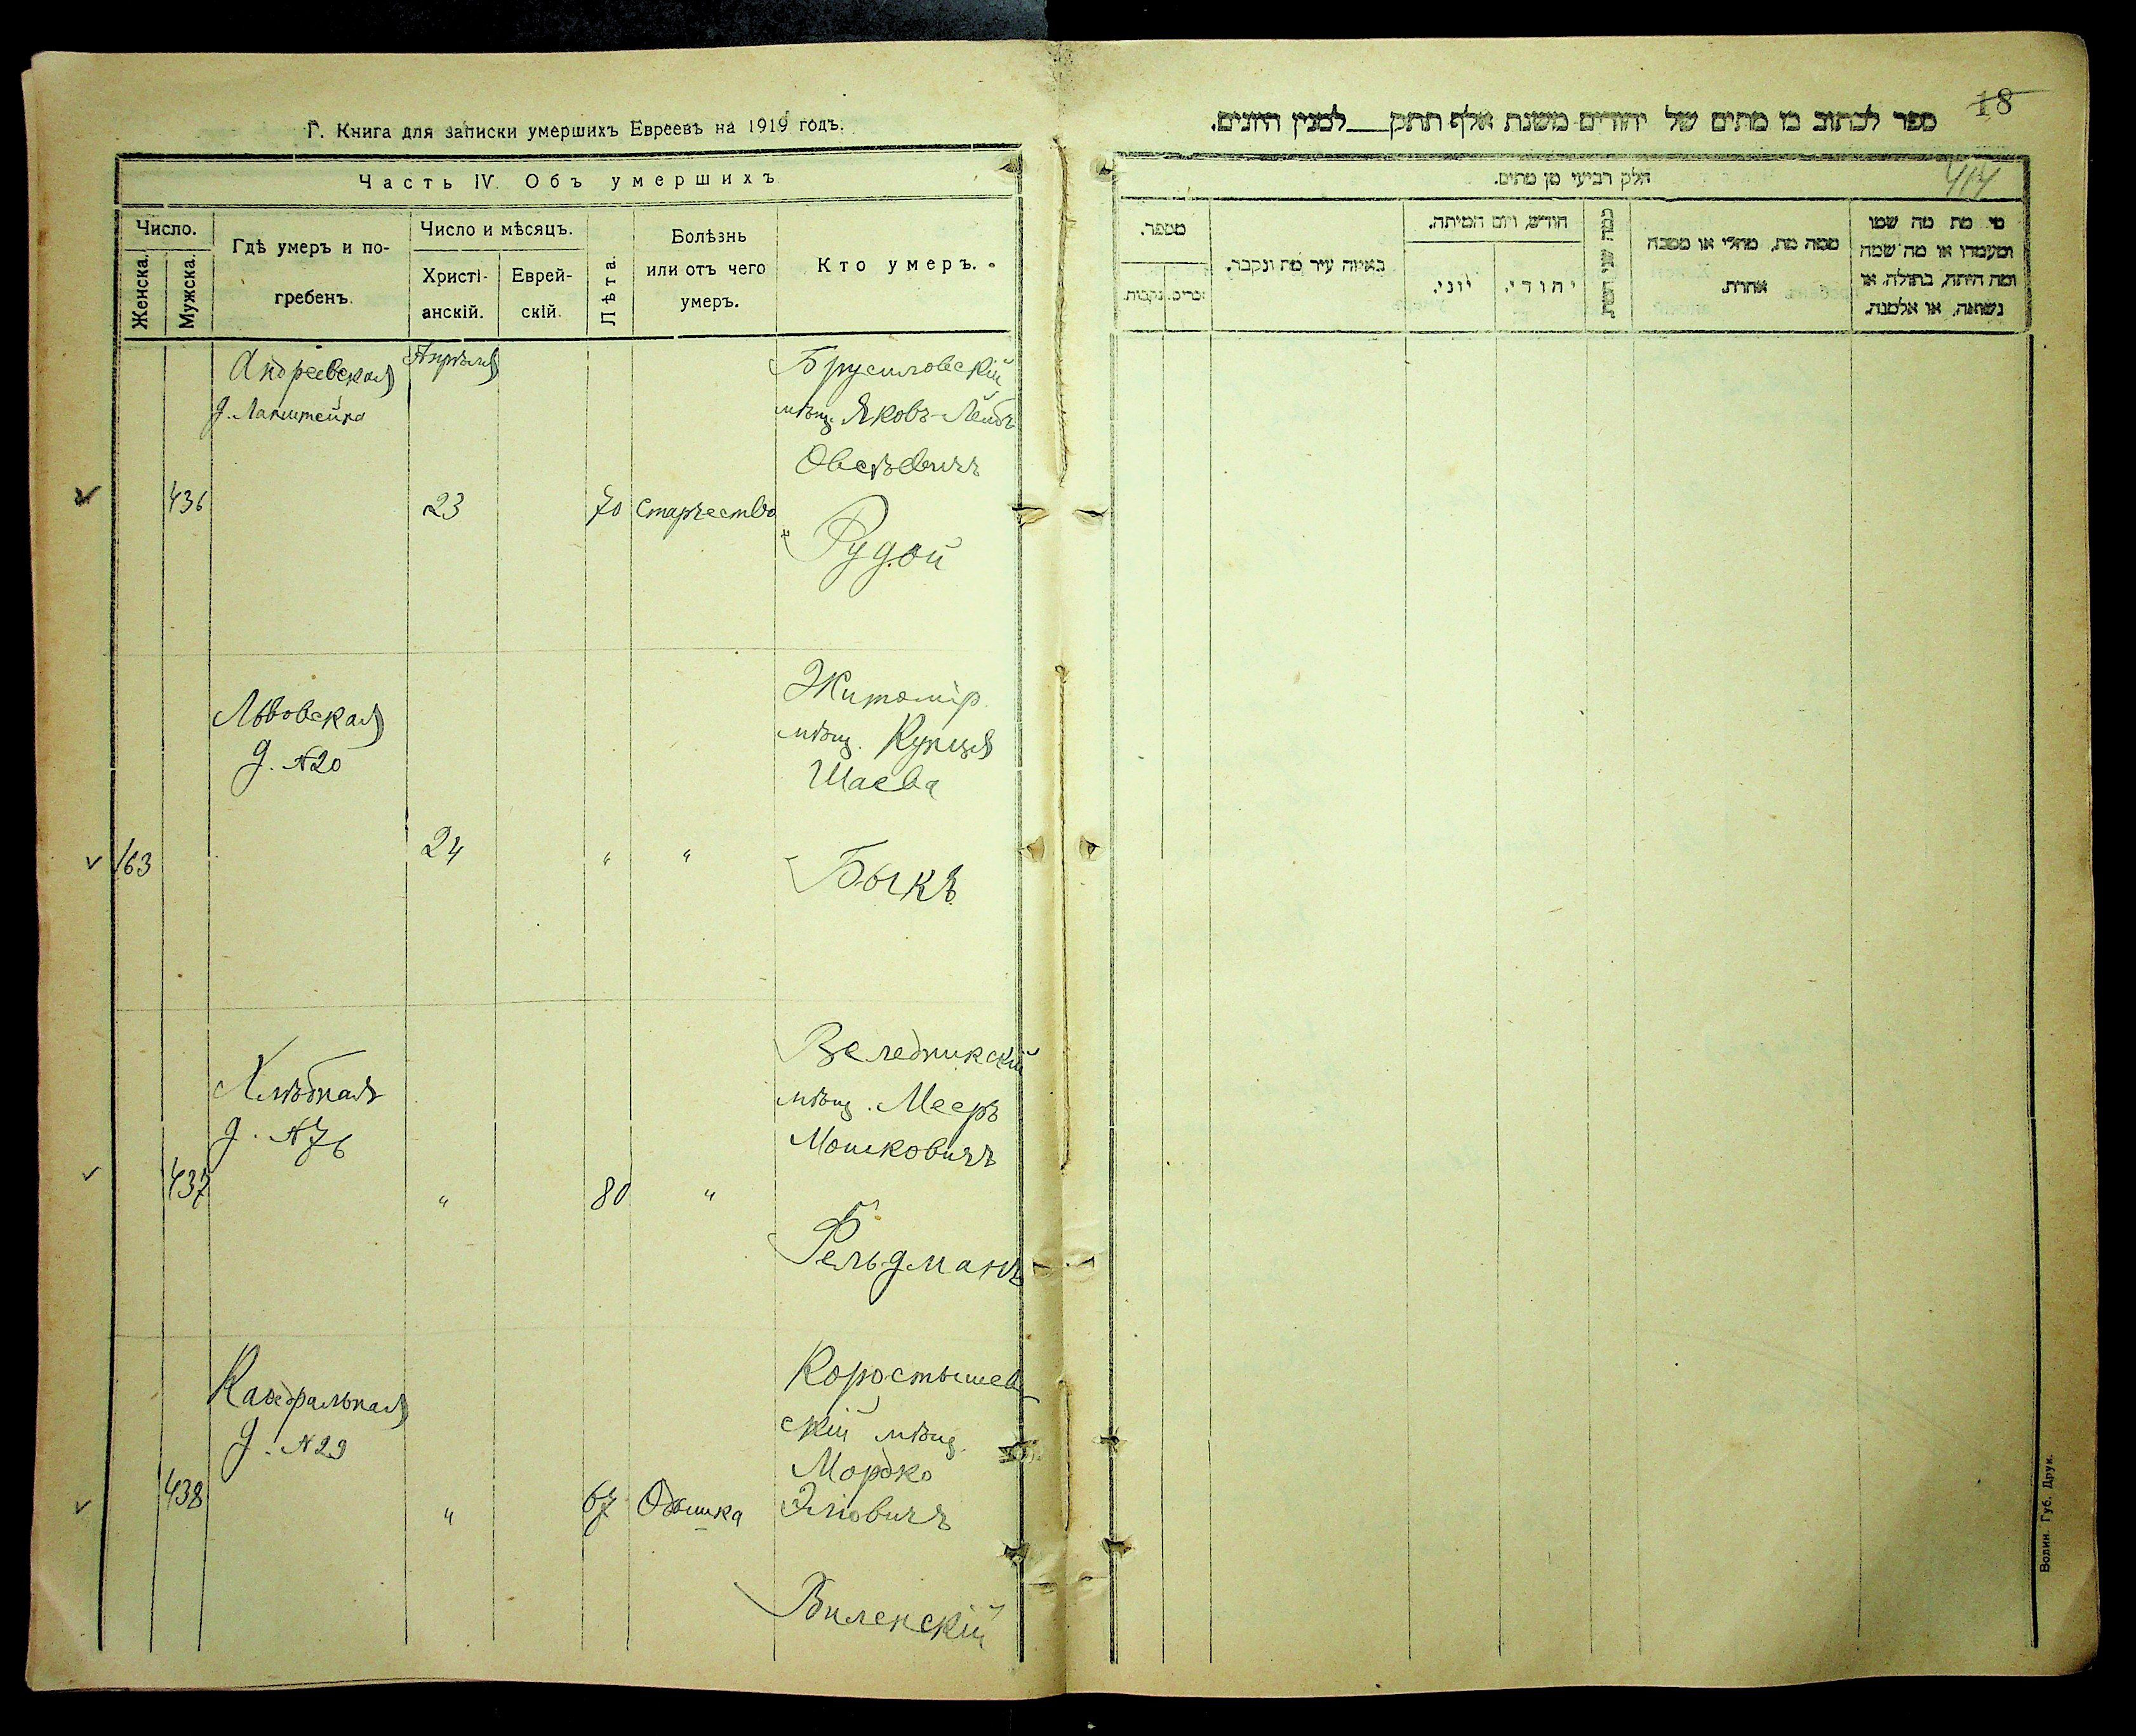 Г. Книга для записки умершихъ Евреевъ на 1919 годъ.
Часть IV. Объ умершихъ
Число.
Женска.
Мужска.
Гдѣ умеръ и по-
гребенъ.
Число и мѣсяцъ.
Христі-
анскій.
Еврей-
скій.
Лѣта.
Болѣзнь
или отъ чего
умеръ.
Кто умеръ.
Андреевская
Апрѣля
Брусиловскій
мѣщ. Яковъ-Лейбъ
Овсѣевичъ
436
23
70
Старчество
Рудой
Львовская
д. №20
Житомір.
мѣщ.
Шаева
163
24
"
"
Быкъ
Хлѣбная
д. №76
Веледникскій
мѣщ. Мееръ
Мошковичъ
437
"
80
"
Фельдманъ
Каѳедральная
д. №29
Коростышев
скій мѣщ.
Мордко
438
"
67
Одышка
Эліовичъ
Виленскій
18
ספר לכתוב בו מתים של יהודים משנת אלף תתק למנין היונים.
חלק רביעי מן מתים.
414
מספר.
זכרים.
נקבות.
באיזה עיר מת ונקבר.
חודש, ויום המיתה.
יוני.
יהודי.
ממה מת, מחלי או מסבה
אחרת.
מי מת מה שמו
ומעמדו או מה שמה
ומה היתה, בתולה, או
נשואה, או אלמנה.
Волин. Губ. Друк.